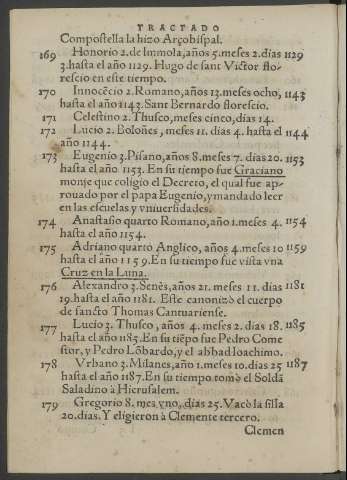 TRACTADO
Compostella la hizo Arçobispal.
169 Honorio 2. de Immola, años 5. meses 2. dias 1129
3. hasta el año 1129. Hugo de sant Victor flo-
rescio en este tiempo.
170 Innocẽcio 2. Romano, años 13. meses ocho, 1143
hasta el año 1143. Sant Bernardo florescio.
171 Celestino 2. Thusco, meses cinco, dias 14.
172 Lucio 2. Boloñes, meses 11. dias 4. hasta el 1144
año 1144.
173 Eugenio 3. Pisano, años 8. meses 7. dias 20. 1153
hasta el año 1153. En su tiempo fue Graciano
monje que coligio el Decreto, el qual fue ap-
rouado por el papa Eugenio, y mandado leer
en las escuelas y vniuersidades.
174 Anastasio quarto Romano, año 1. meses 4. 1154
hasta el año 1154.
175 Adriano quarto Anglico, años 4. meses 10 1159
hasta el año 1159. En su tiempo fue vista vna
Cruz en la Luna.
176 Alexandro 3. Senès, años 21. meses 11. dias 1181
19. hasta el año 1181. Este canonizò el cuerpo
de sancto Thomas Cantuariense.
177 Lucio 3. Thusco, años 4. meses 2. dias 18. 1185
hasta el año 1185. En su tiẽpo fue Pedro Come
stor, y Pedro Lõbardo, y el abbad Ioachimo.
178 Vrbano 3. Milanes, año 1. meses 10. dias 25 1187
hasta el año 1187. En su tiempo tomò el Soldã
Saladino à Hierusalem.
179 Gregorio 8. mes vno, dias 25. Vacò la silla
20. dias. Y eligieron à Clemente tercero.
Clemen